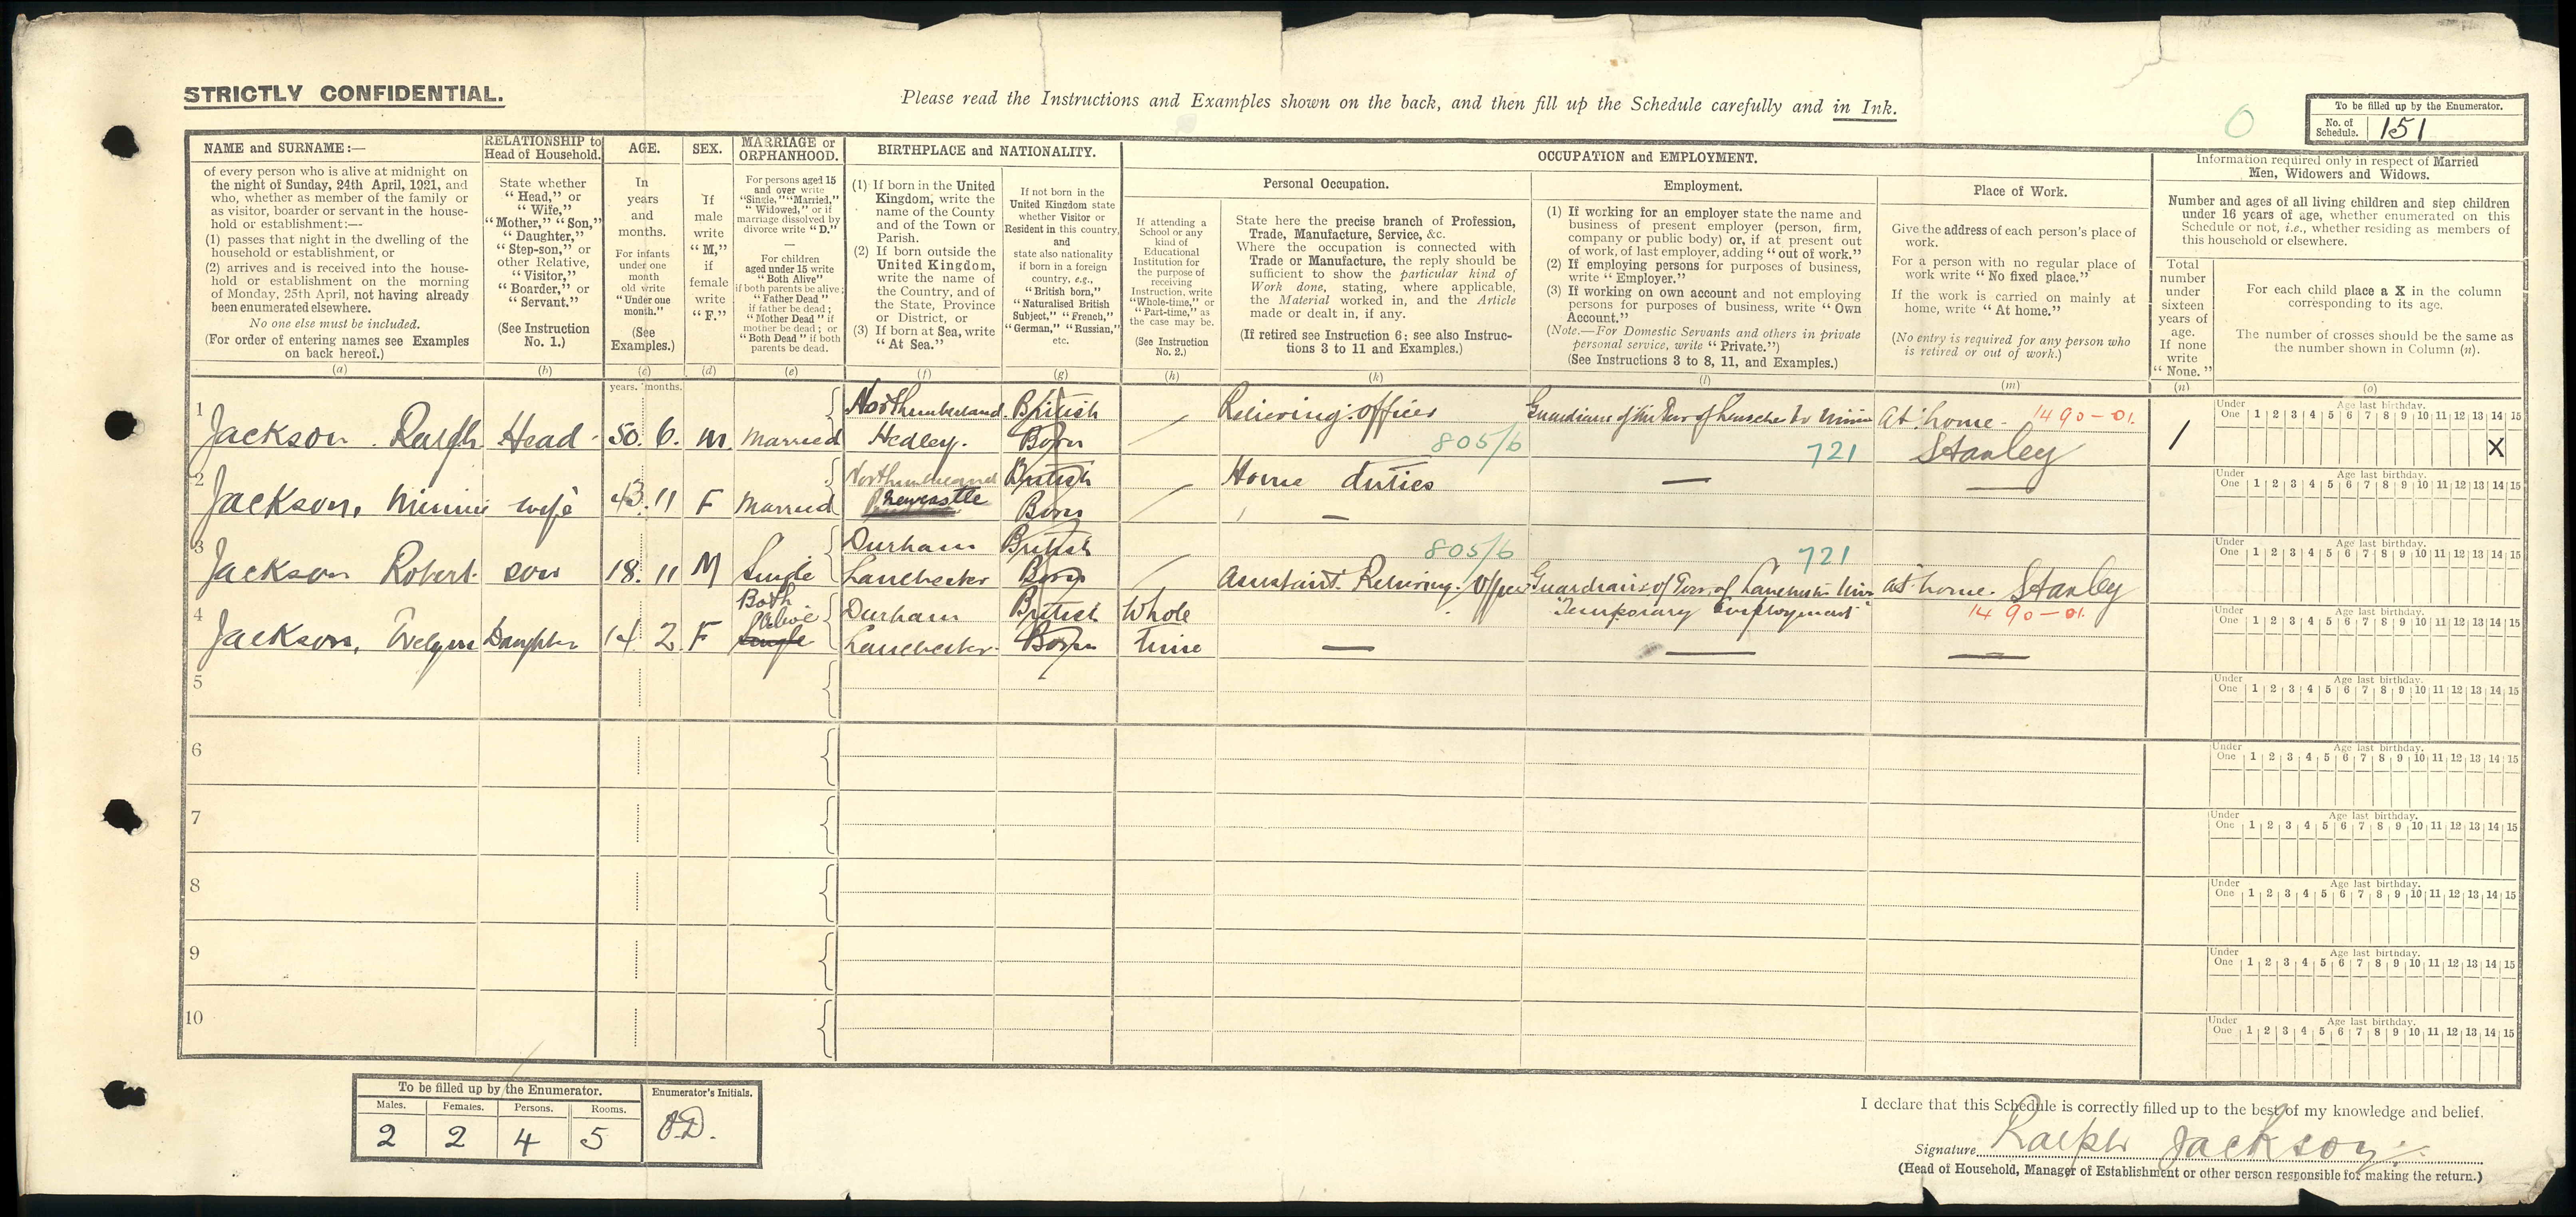 STRICTLY CONFIDENTIAL.
Please read the Instructions and Examples shown on the back, and then fill up the Schedule carefully and in Ink.
0
To be filled up by the Enumerator.
No. of Schedule. 151
NAME and SURNAME:—
of every person who is alive at midnight on
the night of Sunday, 24th April, 1921, and
who, whether as member of the family or
as visitor, boarder or servant in the house-
hold or establishment:—
(1) passes that night in the dwelling of the
household or establishment, or
(2) arrives and is received into the house-
hold or establishment on the morning
of Monday, 25th April, not having already
been enumerated elsewhere.
No one else must be included.
(For order of entering names see Examples
on back hereof.)
(a)
RELATIONSHIP to
Head of Household.
State whether
"Head," or
"Wife,"
"Mother," "Son,"
"Daughter,"
"Step-son," or
other Relative,
"Visitor,"
"Boarder," or
"Servant."
(See Instruction
No. 1.)
(b)
AGE.
In
years
and
months.
For infants
under one
month
old write
"Under one
month."
(See
Examples.)
(c)
years. months.
SEX.
If
male
write
"M,"
if
female
write
"F."
(d)
MARRIAGE or
ORPHANHOOD.
For persons aged 15
and over write
"Single," "Married,"
"Widowed," or if
marriage dissolved by
divorce write "D."
—
For children
aged under 15 write
"Both Alive"
if both parents be alive;
"Father Dead"
if father be dead;
"Mother Dead" if
mother be dead; or
"Both Dead" if both
parents be dead.
(e)
BIRTHPLACE and NATIONALITY.
(1) If born in the United
Kingdom, write the
name of the County
and of the Town or
Parish.
(2) If born outside the
United Kingdom,
write the name of
the Country, and of
the State, Province
or District, or
(3) If born at Sea, write
"At Sea."
(f)
If not born in the
United Kingdom state
whether Visitor or
Resident in this country,
and
state also nationality
if born in a foreign
country, e.g.,
"British born,"
"Naturalised British
Subject," "French,"
"German," "Russian,"
etc.
(g)
OCCUPATION and EMPLOYMENT.
Personal Occupation.
If attending a
School or any
kind of
Educational
Institution for
the purpose of
receiving
Instruction, write
"Whole-time," or
"Part-time," as
the case may be.
(See Instruction
No. 2.)
(h)
State here the precise branch of Profession,
Trade, Manufacture, Service, &c.
Where the occupation is connected with
Trade or Manufacture, the reply should be
sufficient to show the particular kind of
Work done, stating, where applicable,
the Material worked in, and the Article
made or dealt in, if any.
(If retired see Instruction 6; see also Instruc-
tions 3 to 11 and Examples.)
(k)
Employment.
(1) If working for an employer state the name and
business of present employer (person, firm,
company or public body) or, if at present out
of work, of last employer, adding "out of work."
(2) If employing persons for purposes of business,
write "Employer."
(3) If working on own account and not employing
persons for purposes of business, write "Own
Account."
(Note.—For Domestic Servants and others in private
personal service, write "Private.")
(See Instructions 3 to 8, 11, and Examples.)
(l)
Place of Work.
Give the address of each person's place of
work.
For a person with no regular place of
work write "No fixed place."
If the work is carried on mainly at
home, write "At home."
(No entry is required for any person who
is retired or out of work.)
(m)
Information required only in respect of Married
Men, Widowers and Widows.
Number and ages of all living children and step children
under 16 years of age, whether enumerated on this
Schedule or not, i.e., whether residing as members of
this household or elsewhere.
Total
number
under
sixteen
years of
age.
If none
write
"None."
(n)
For each child place a X in the column
corresponding to its age.
The number of crosses should be the same as
the number shown in Column (n).
(o)
1 Jackson. Ralph Head 50. 6. M. Married Northumberland. British
Hedley. Born
Relieving officer Guardians of the Poor of At home. 1490-01.
805/6 721 Stanley 1
Under One 1 2 3 4 5 6 7 8 9 10 11 12 13 14 15
Age last birthday.
X
2 Jackson, Minnie wife 43. 11 F Married Northumberland British
Newcastle Born
Home duties — —
—
Under One 1 2 3 4 5 6 7 8 9 10 11 12 13 14 15
Age last birthday.
3 Jackson Robert. son 18. 11 M Single Durham British
Lanchester Born
805/6 721
Assistant Relieving. Officer Guardians of Poor, of at home. Stanley
"Temporary Employment" 1490-01.
Under One 1 2 3 4 5 6 7 8 9 10 11 12 13 14 15
Age last birthday.
4 Jackson, Evelyn Daughter 14. 2 F Both Alive Single Durham British Whole
Lanchester. Born time — — —
Under One 1 2 3 4 5 6 7 8 9 10 11 12 13 14 15
Age last birthday.
5
Under One 1 2 3 4 5 6 7 8 9 10 11 12 13 14 15
Age last birthday.
6
Under One 1 2 3 4 5 6 7 8 9 10 11 12 13 14 15
Age last birthday.
7
Under One 1 2 3 4 5 6 7 8 9 10 11 12 13 14 15
Age last birthday.
8
Under One 1 2 3 4 5 6 7 8 9 10 11 12 13 14 15
Age last birthday.
9
Under One 1 2 3 4 5 6 7 8 9 10 11 12 13 14 15
Age last birthday.
10
Under One 1 2 3 4 5 6 7 8 9 10 11 12 13 14 15
Age last birthday.
To be filled up by the Enumerator.
Males. Females. Persons. Rooms.
2 2 4 5
Enumerator's Initials.
I declare that this Schedule is correctly filled up to the best of my knowledge and belief.
Signature Ralph Jackson
(Head of Household, Manager of Establishment or other person responsible for making the return.)